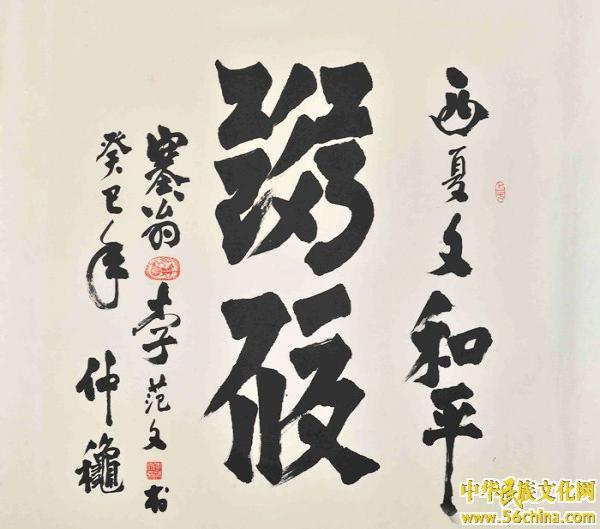 西夏文和平
塞翁 李范文书
癸巳年 仲穐
中华民族文化网
www.56china.com